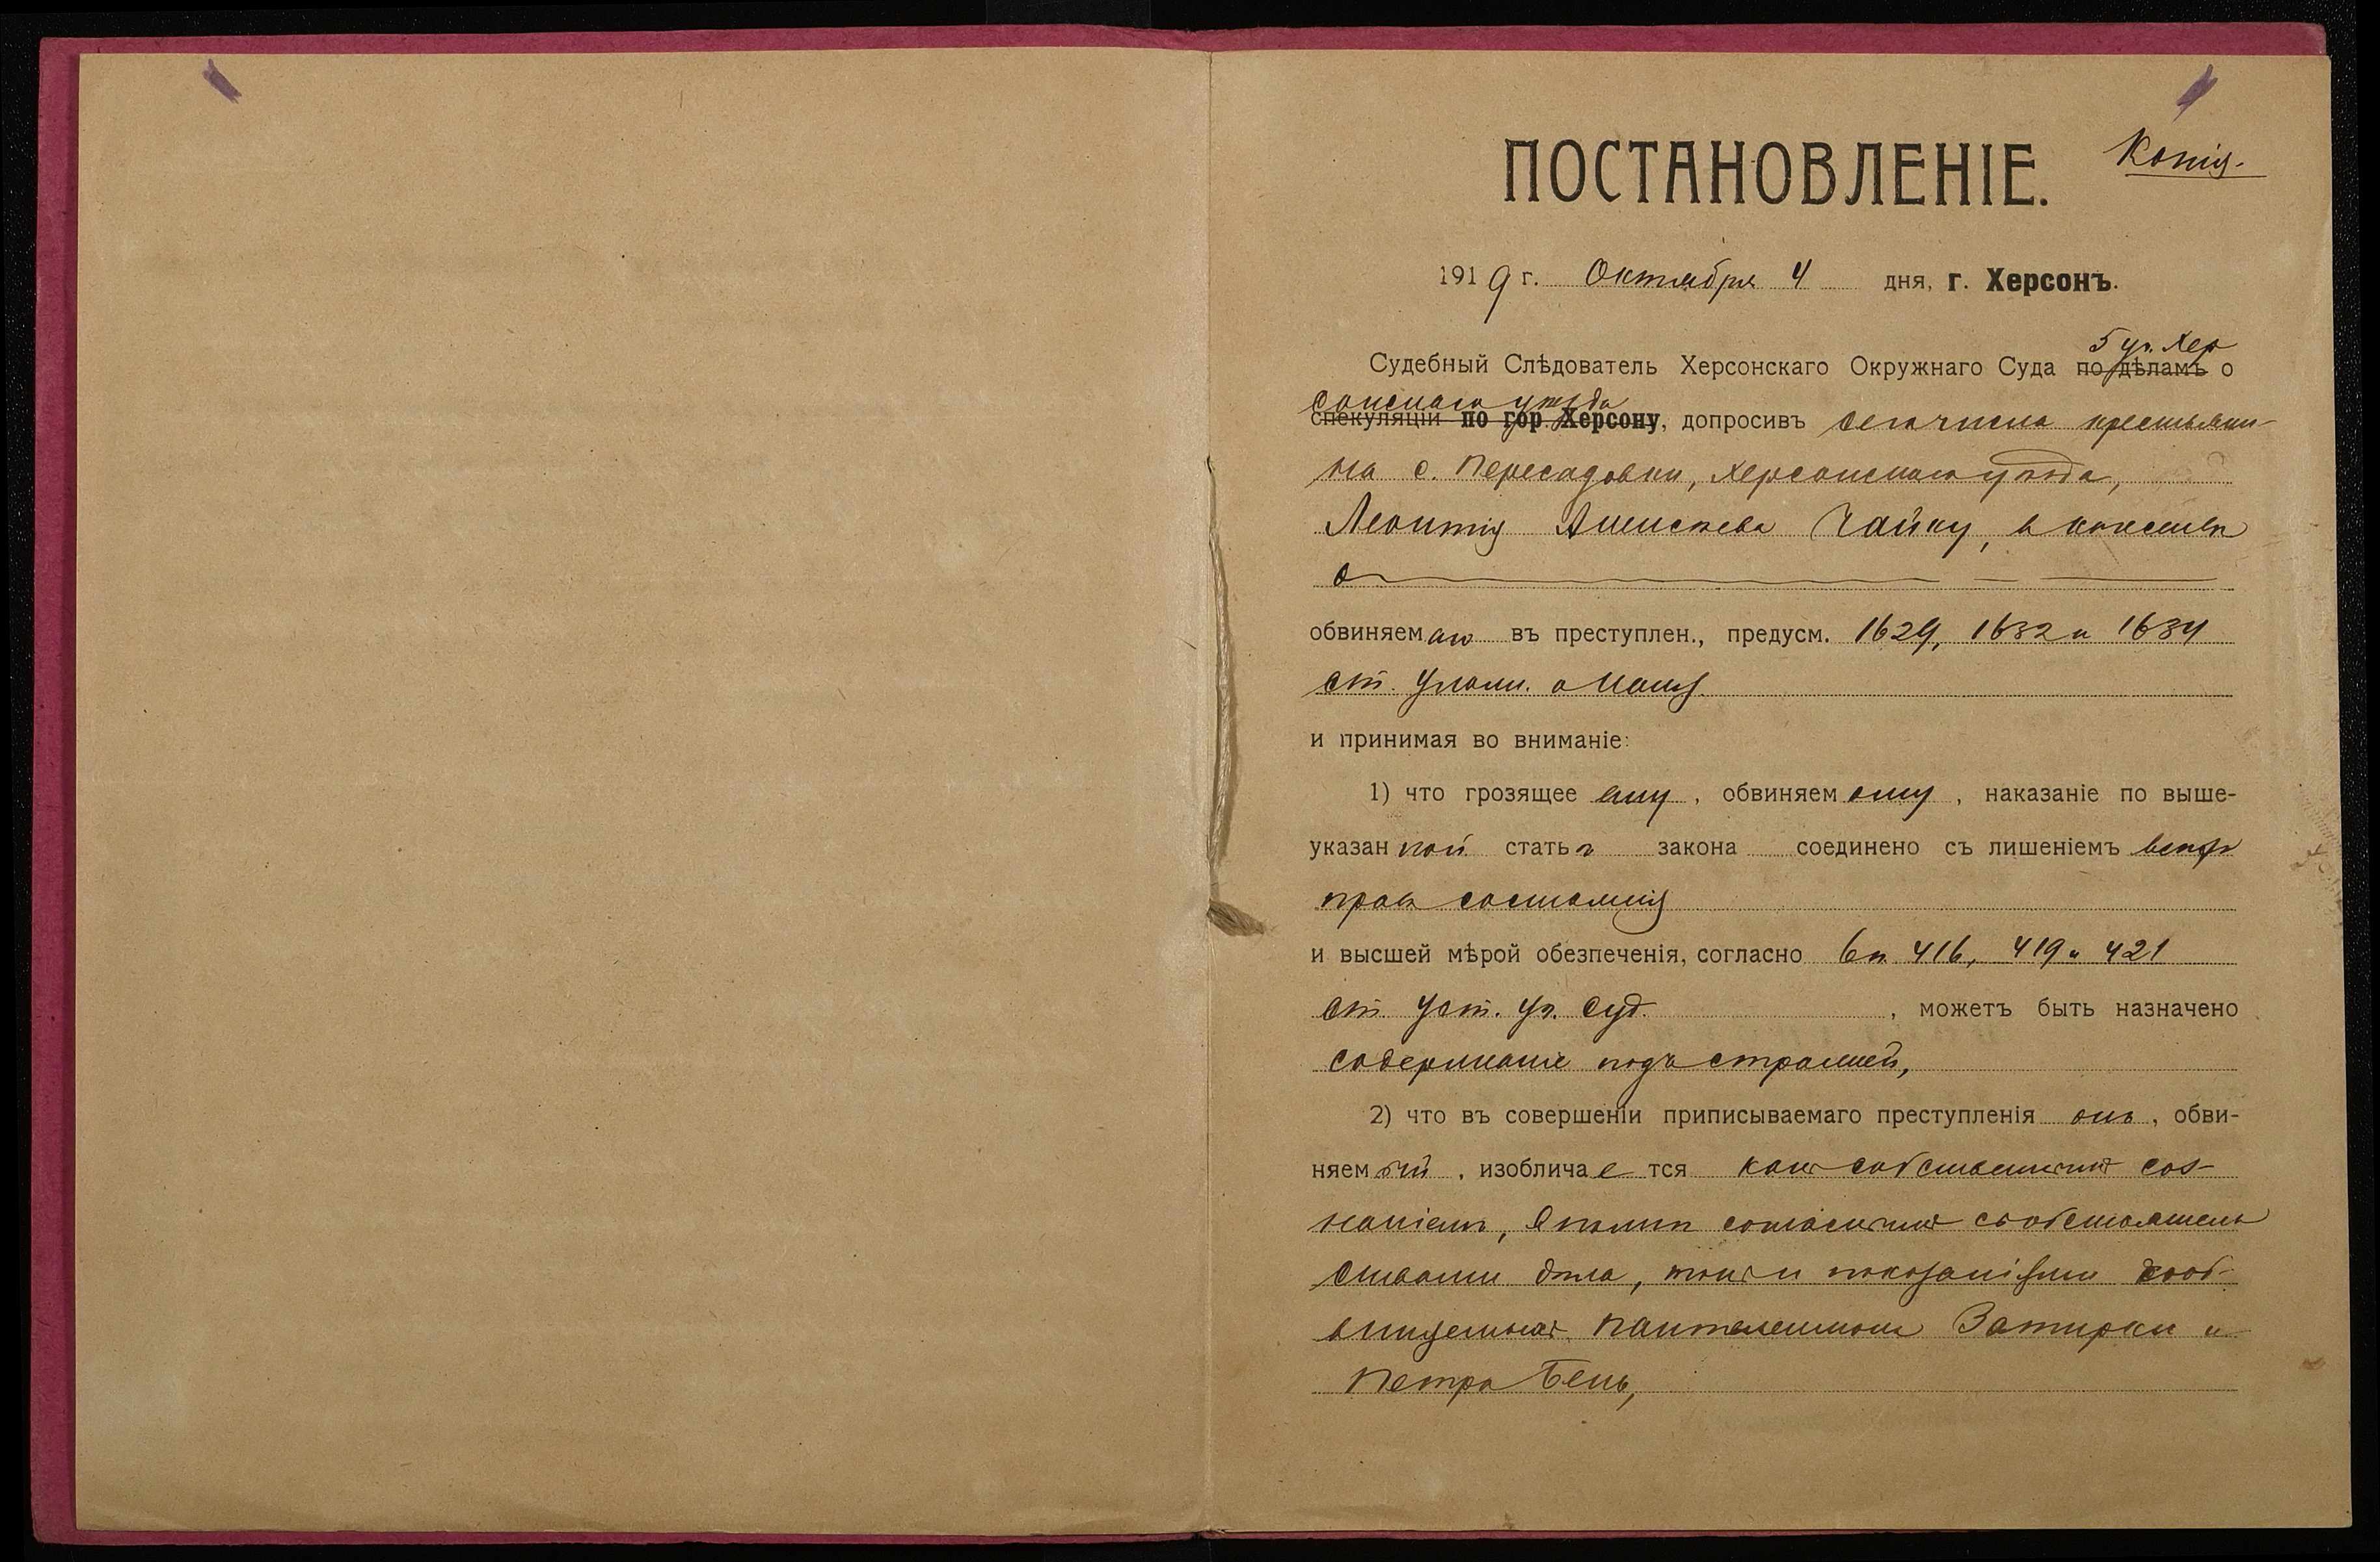 Копія.
ПОСТАНОВЛЕНІЕ.
1919 г. Октября 4 дня, г. Херсонъ.
5 уч. Хер
Судебный Слѣдователь Херсонскаго Окружнаго Суда по дѣламъ о
сонскаго уѣзда
спекуляціи по гор. Херсону, допросивъ сего числа крестьяни-
на с. Пересадовки, Херсонскаго уѣзда,
Леонтія Чайку, в качествѣ
обвиняемаго въ преступлен., предусм. 1629, 1632 и 1634
ст. Улож. о Наказ.
и принимая во вниманіе:
1) что грозящее ему, обвиняемому, наказаніе по выше-
указанной статьѣ закона соединено съ лишеніемъ всѣхъ
правъ состоянія
и высшей мѣрой обезпеченія, согласно 6 п. 416, 419 и 421
ст. Уст. Уг. Суд., можетъ быть назначено
содержаніе подъ стражей,
2) что въ совершеніи приписываемаго преступленія онъ, обви-
няемый, изобличается какъ собственнымъ соз-
наніемъ, вполнѣ согласнымъ съ обстоятель
ствами дѣла, такъ и показаніями сооб-
виняемыхъ Пантелеимона Затирки и
Петра Бень,